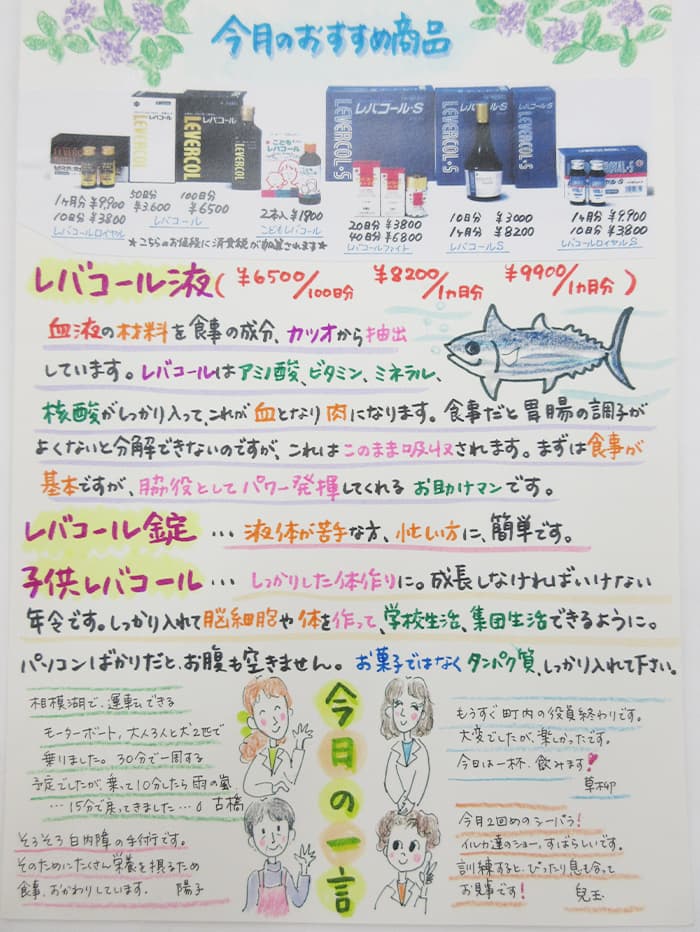 今月のおすすめ商品
LEVERCOL
レバコール
LEVERCOL
LEVERCOL
こども
レバコール
レバコール・S
LEVERCOL・S
LEVERCOL・S
1ヶ月分 ¥9,900
10日分 ¥3800
レバコールロイヤル
50日分
¥3,600
100日分
¥6500
レバコール
2本入 ¥1900
こどもレバコール
20日分 ¥3800
40日分 ¥6800
レバコールファイト
10日分 ¥3000
1ヶ月分 ¥8200
レバコールS
1ヶ月分 ¥9,900
10日分 ¥3800
レバコールロイヤルS
★こちらのお値段に消費税が加算されます★
レバコール液(¥6500/100日分 ¥8200/1カ月分 ¥9900/1カ月分)
血液の材料を食事の成分、カツオから抽出
しています。レバコールはアミノ酸、ビタミン、ミネラル、
核酸がしっかり入って、これが血となり肉になります。食事だと胃腸の調子が
よくないと分解できないのですが、これはこのまま吸収されます。まずは食事が
基本ですが、脇役としてパワー発揮してくれるお助けマンです。
レバコール錠 … 液体が苦手な方、忙しい方に、簡単です。
子供レバコール … しっかりした体作りに。成長しなければいけない
年令です。しっかり入れて脳細胞や体を作って、学校生活、集団生活できるように。
パソコンばかりだと、お腹も空きません。お菓子ではなくタンパク質、しっかり入れて下さい。
今月の一言
相模湖で、運転できる
モーターボート、大人3人と犬2匹で
乗りました。30分で一周する
予定でしたが、乗って10分したら雨の嵐
…15分で戻ってきました…。 古橋
そろそろ白内障の手術です。
そのためにたくさん栄養を摂るため
食事、おかわりしています。 陽子
もうすぐ町内の役員終わりです。
大変でしたが、楽しかったです。
今日は一杯、飲みます!
草柳
今月2回めのシーパラ!
イルカ達のショー、すばらしいです。
訓練すると、ぴったり息も合って
お見事です! 兒玉